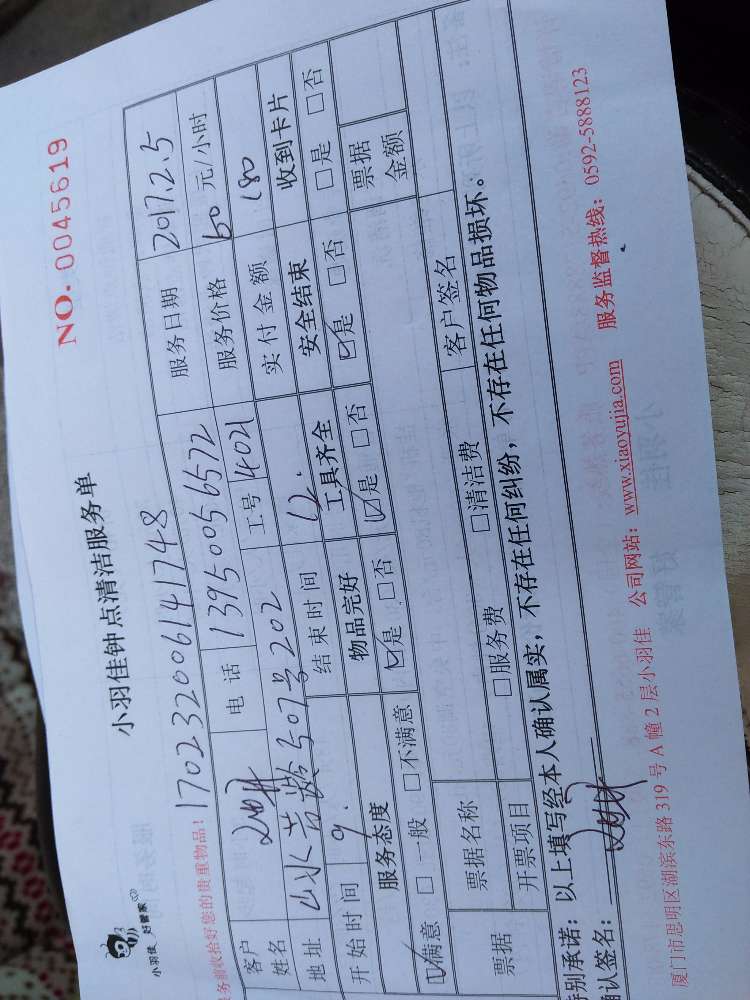 小羽佳 好管家
小羽佳钟点清洁服务单
NO. 0045619
务前收拾好您的贵重物品! 170232006141748
客户姓名 电话 13950056572 服务日期 2017.2.5
地址 山水芳龄507号202 工号 4021 服务价格 60 元/小时
开始时间 9. 结束时间 12. 实付金额 180
服务态度 物品完好 工具齐全 安全结束 收到卡片
☑满意 □一般 □不满意 ☑是 □否 ☑是 □否 ☑是 □否 □是 □否
票据 票据名称 票据金额
开票项目 □服务费 □清洁费 客户签名
特别承诺: 以上填写经本人确认属实, 不存在任何纠纷, 不存在任何物品损坏。
确认签名:
厦门市思明区湖滨东路 319 号 A 幢 2 层小羽佳 公司网站: www.xiaoyujia.com 服务监督热线: 0592-5888123